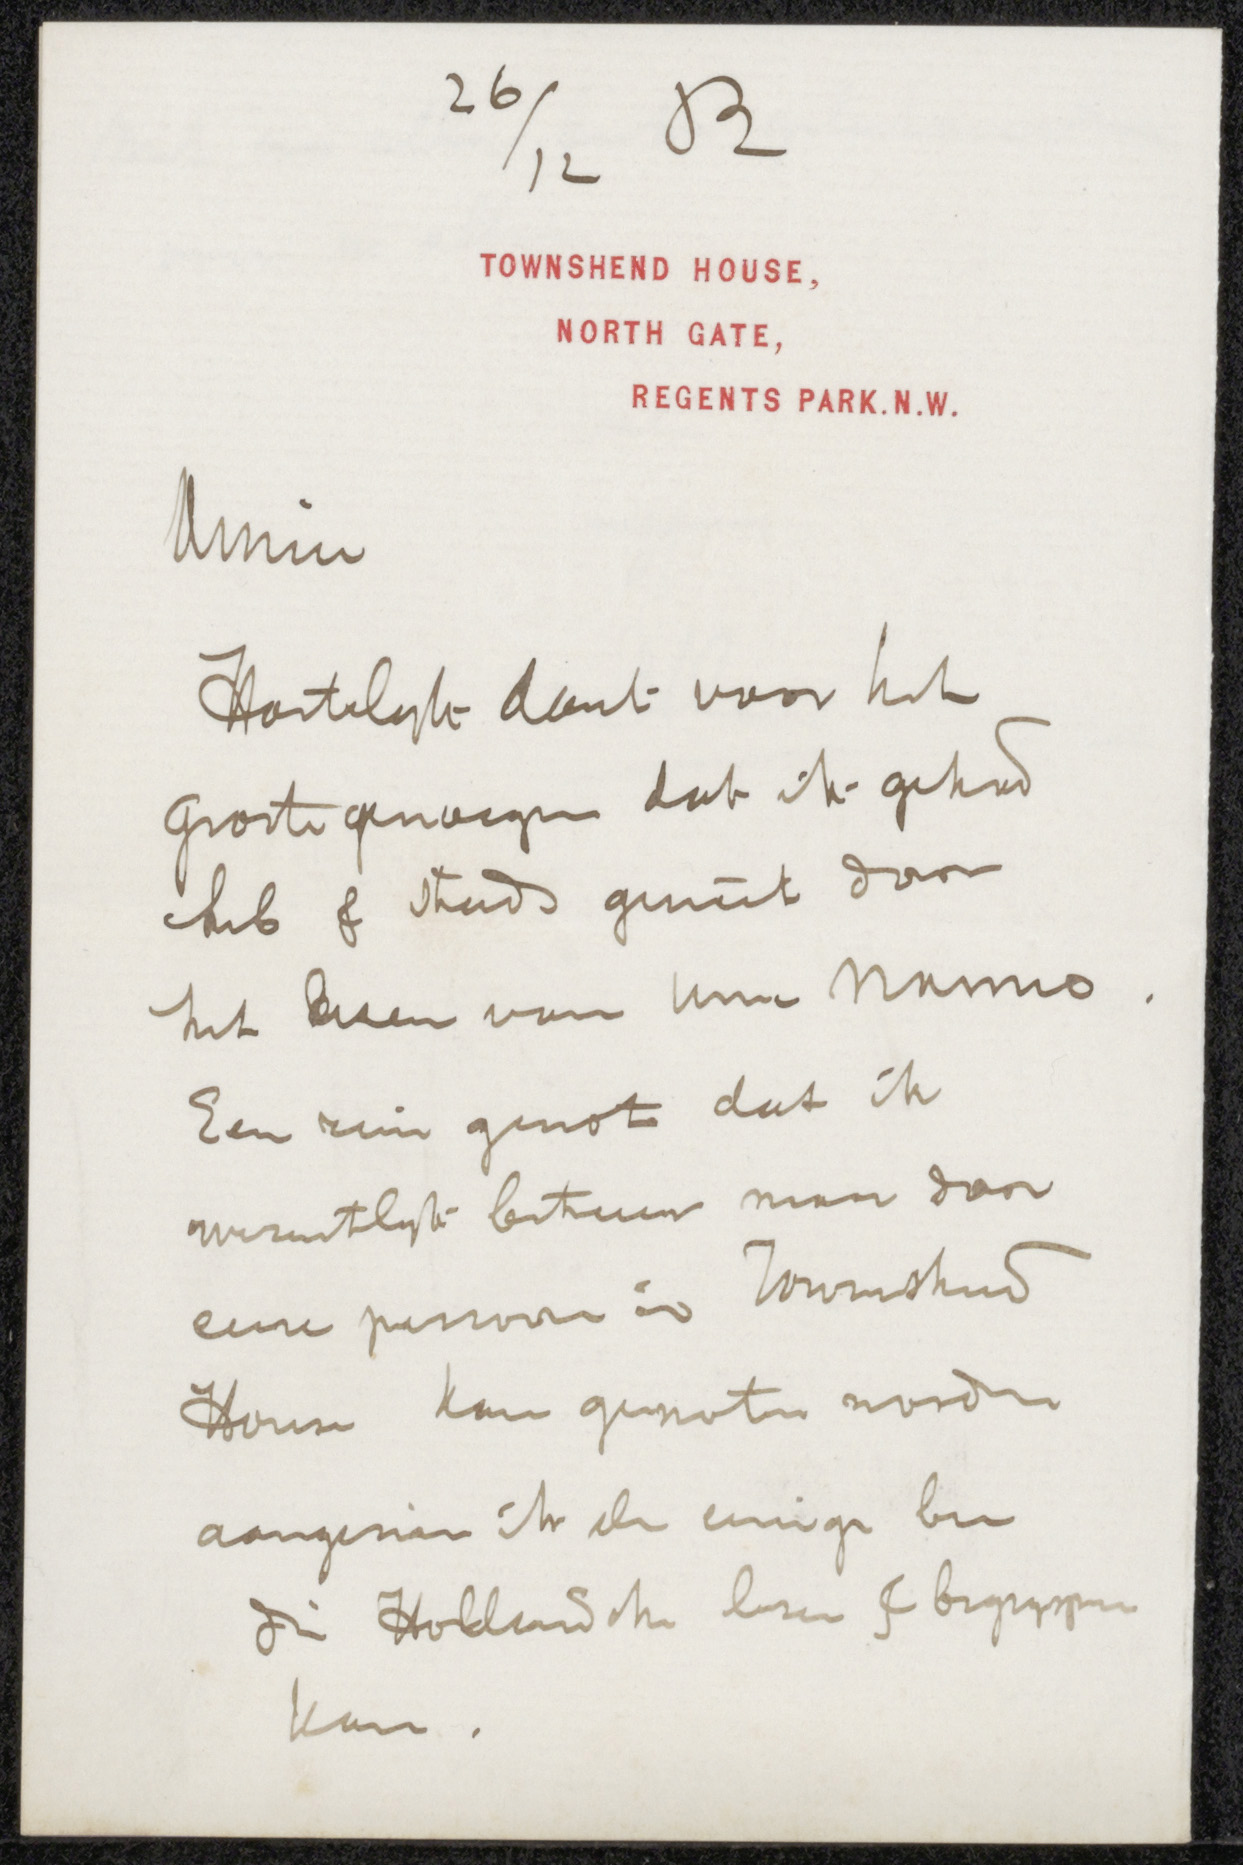 26/12 82
TOWNSHEND HOUSE,
NORTH GATE,
REGENTS PARK.N.W.
Amice
Hartelyk dank voor het
groote genoegen dat ik gehad
heb & steeds geniet door
het lesen van Uwe Nanno.
Een rein genot dat ik
wezentlyk betreur maar door
eene persoon in Townshend
House kan genoten worden
aangezien ik de eenige ben
die Hollandsche lezen & begrypen
kan.